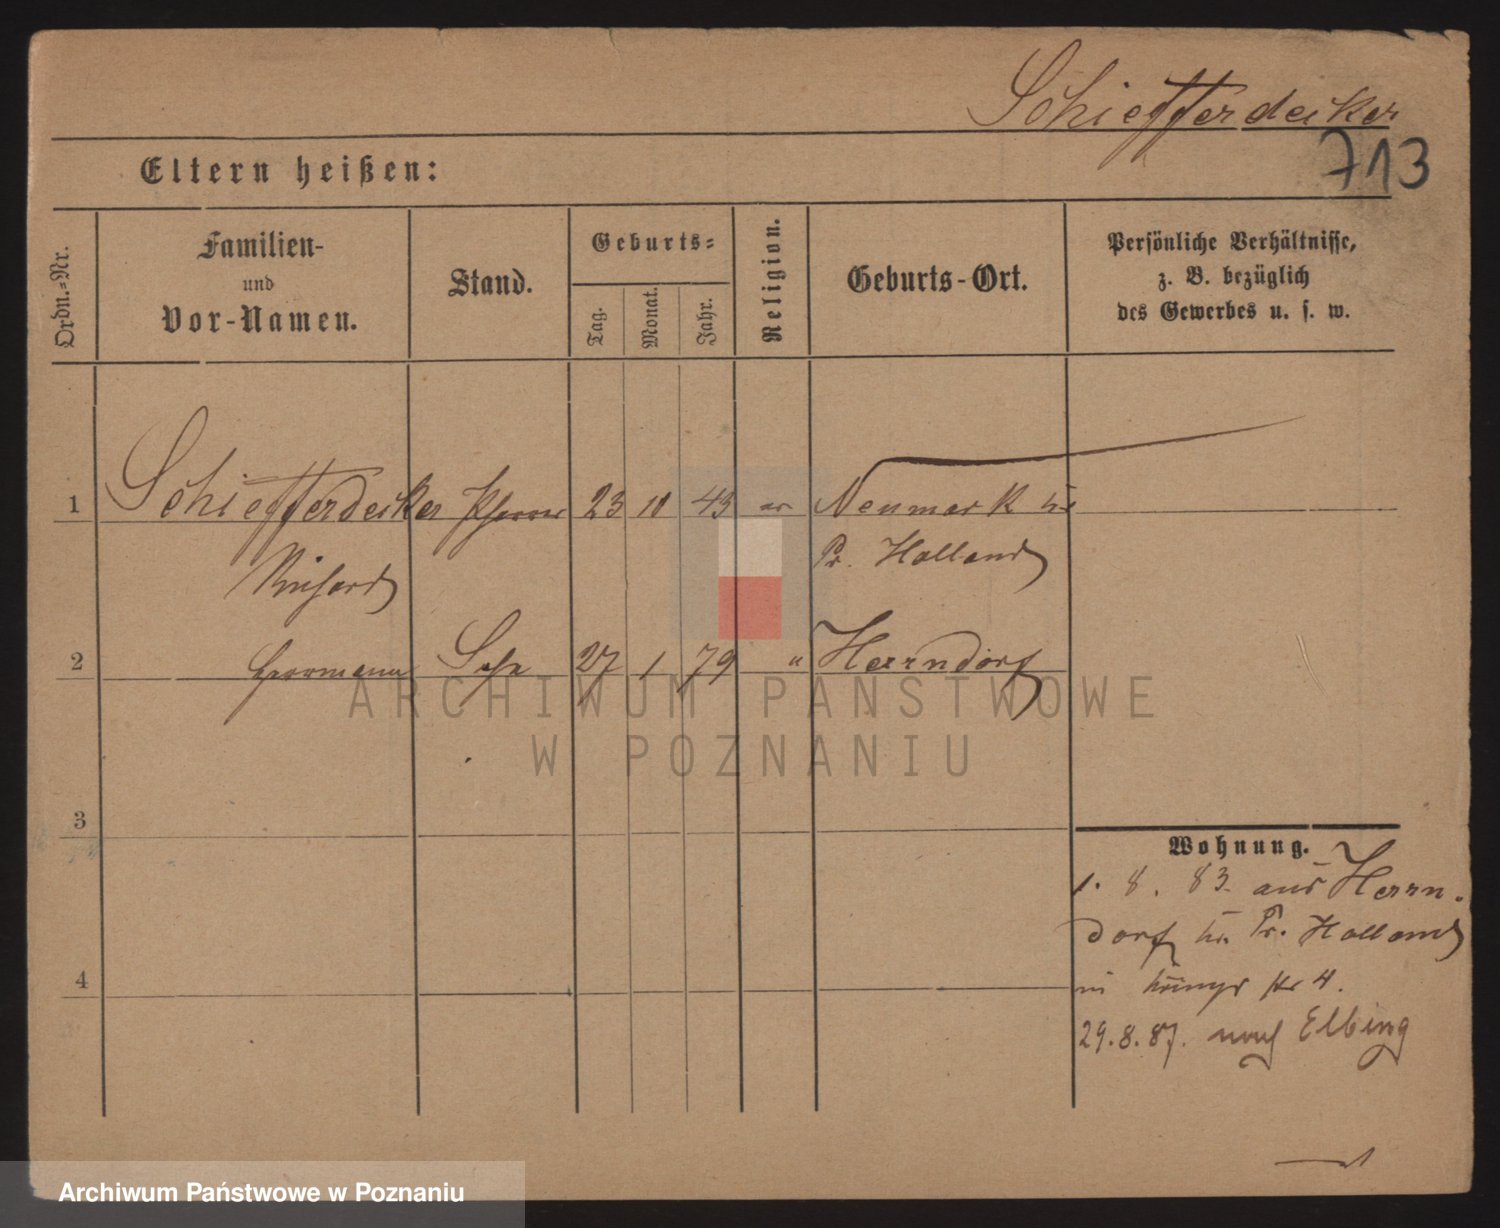 Schiefferdecker
713
Eltern heißen:
Ordn.=Nr.
Familien-
und
Vor-Namen.
Stand.
Geburts=
Tag.
Monat.
Jahr.
Religion.
Geburts-Ort.
Persönliche Verhältnisse,
z. B. bezüglich
des Gewerbes u. s. w.
1 Schiefferdecker Pfarrer 23 10 43 Neumark
Richard Pr. Holland
2 Herrmann 27 1 79 " Herrndorf
ARCHIWUM PAŃSTWOWE
W POZNANIU
3
4
Wohnung.
1. 8. 83. aus Herrn-
dorf Pr. Holland
4.
29.8.87. nach Elbing
Archiwum Państwowe w Poznaniu